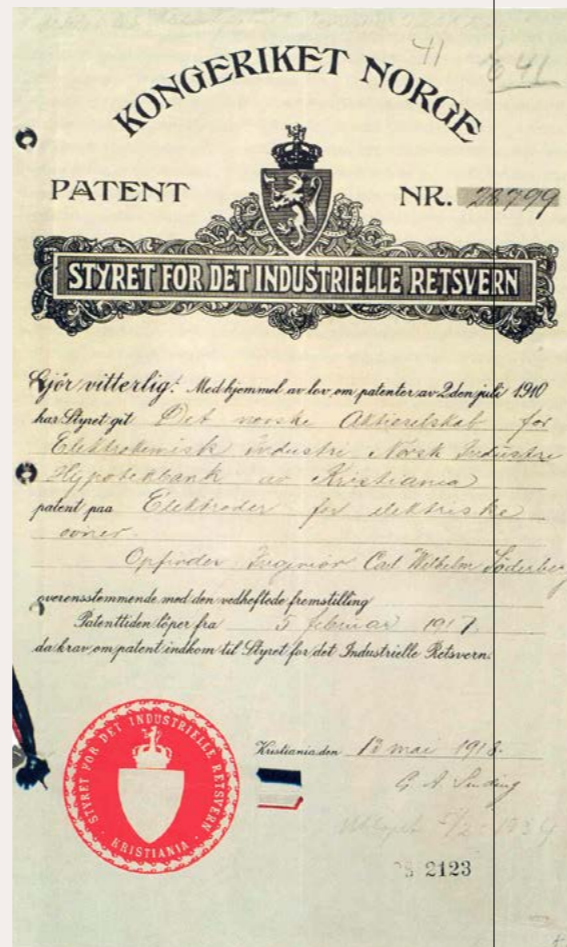 41
41
KONGERIKET NORGE
PATENT NR. 28799
STYRET FOR DET INDUSTRIELLE RETSVERN
Gjör vitterlig: Med hjemmel av lov om patenter av 2den juli 1910
har Styret git Det norske Aktieselskab for
Elektrokemisk Industri Norsk Industri
Hypotekbank av Kristiania
patent paa Elektroder for elektriske
ovner.
Opfinder Ingeniör Carl Wilhelm Söderberg
overensstemmende med den vedheftede fremstilling
Patenttiden löper fra 5 februar 1917.
da krav om patent indkom til Styret for det Industrielle Retsvern.
STYRET FOR DET INDUSTRIELLE RETSVERN
KRISTIANIA
Kristiania den 13 mai 1918.
G. A. Sinding
1934
2123